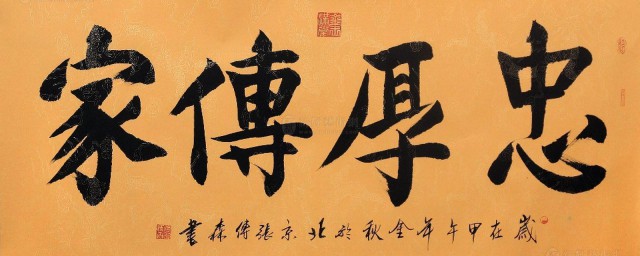 忠厚傳家
歲在甲午年金秋於北京張傳森書